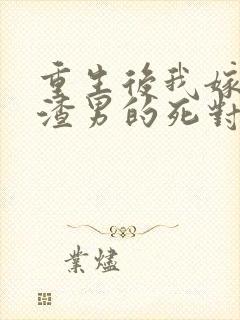 重生後我嫁
渣男的死對
業燼